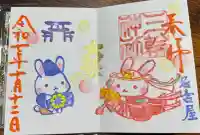 奉拝
名古屋
三輪神社
令和七年十月十二日